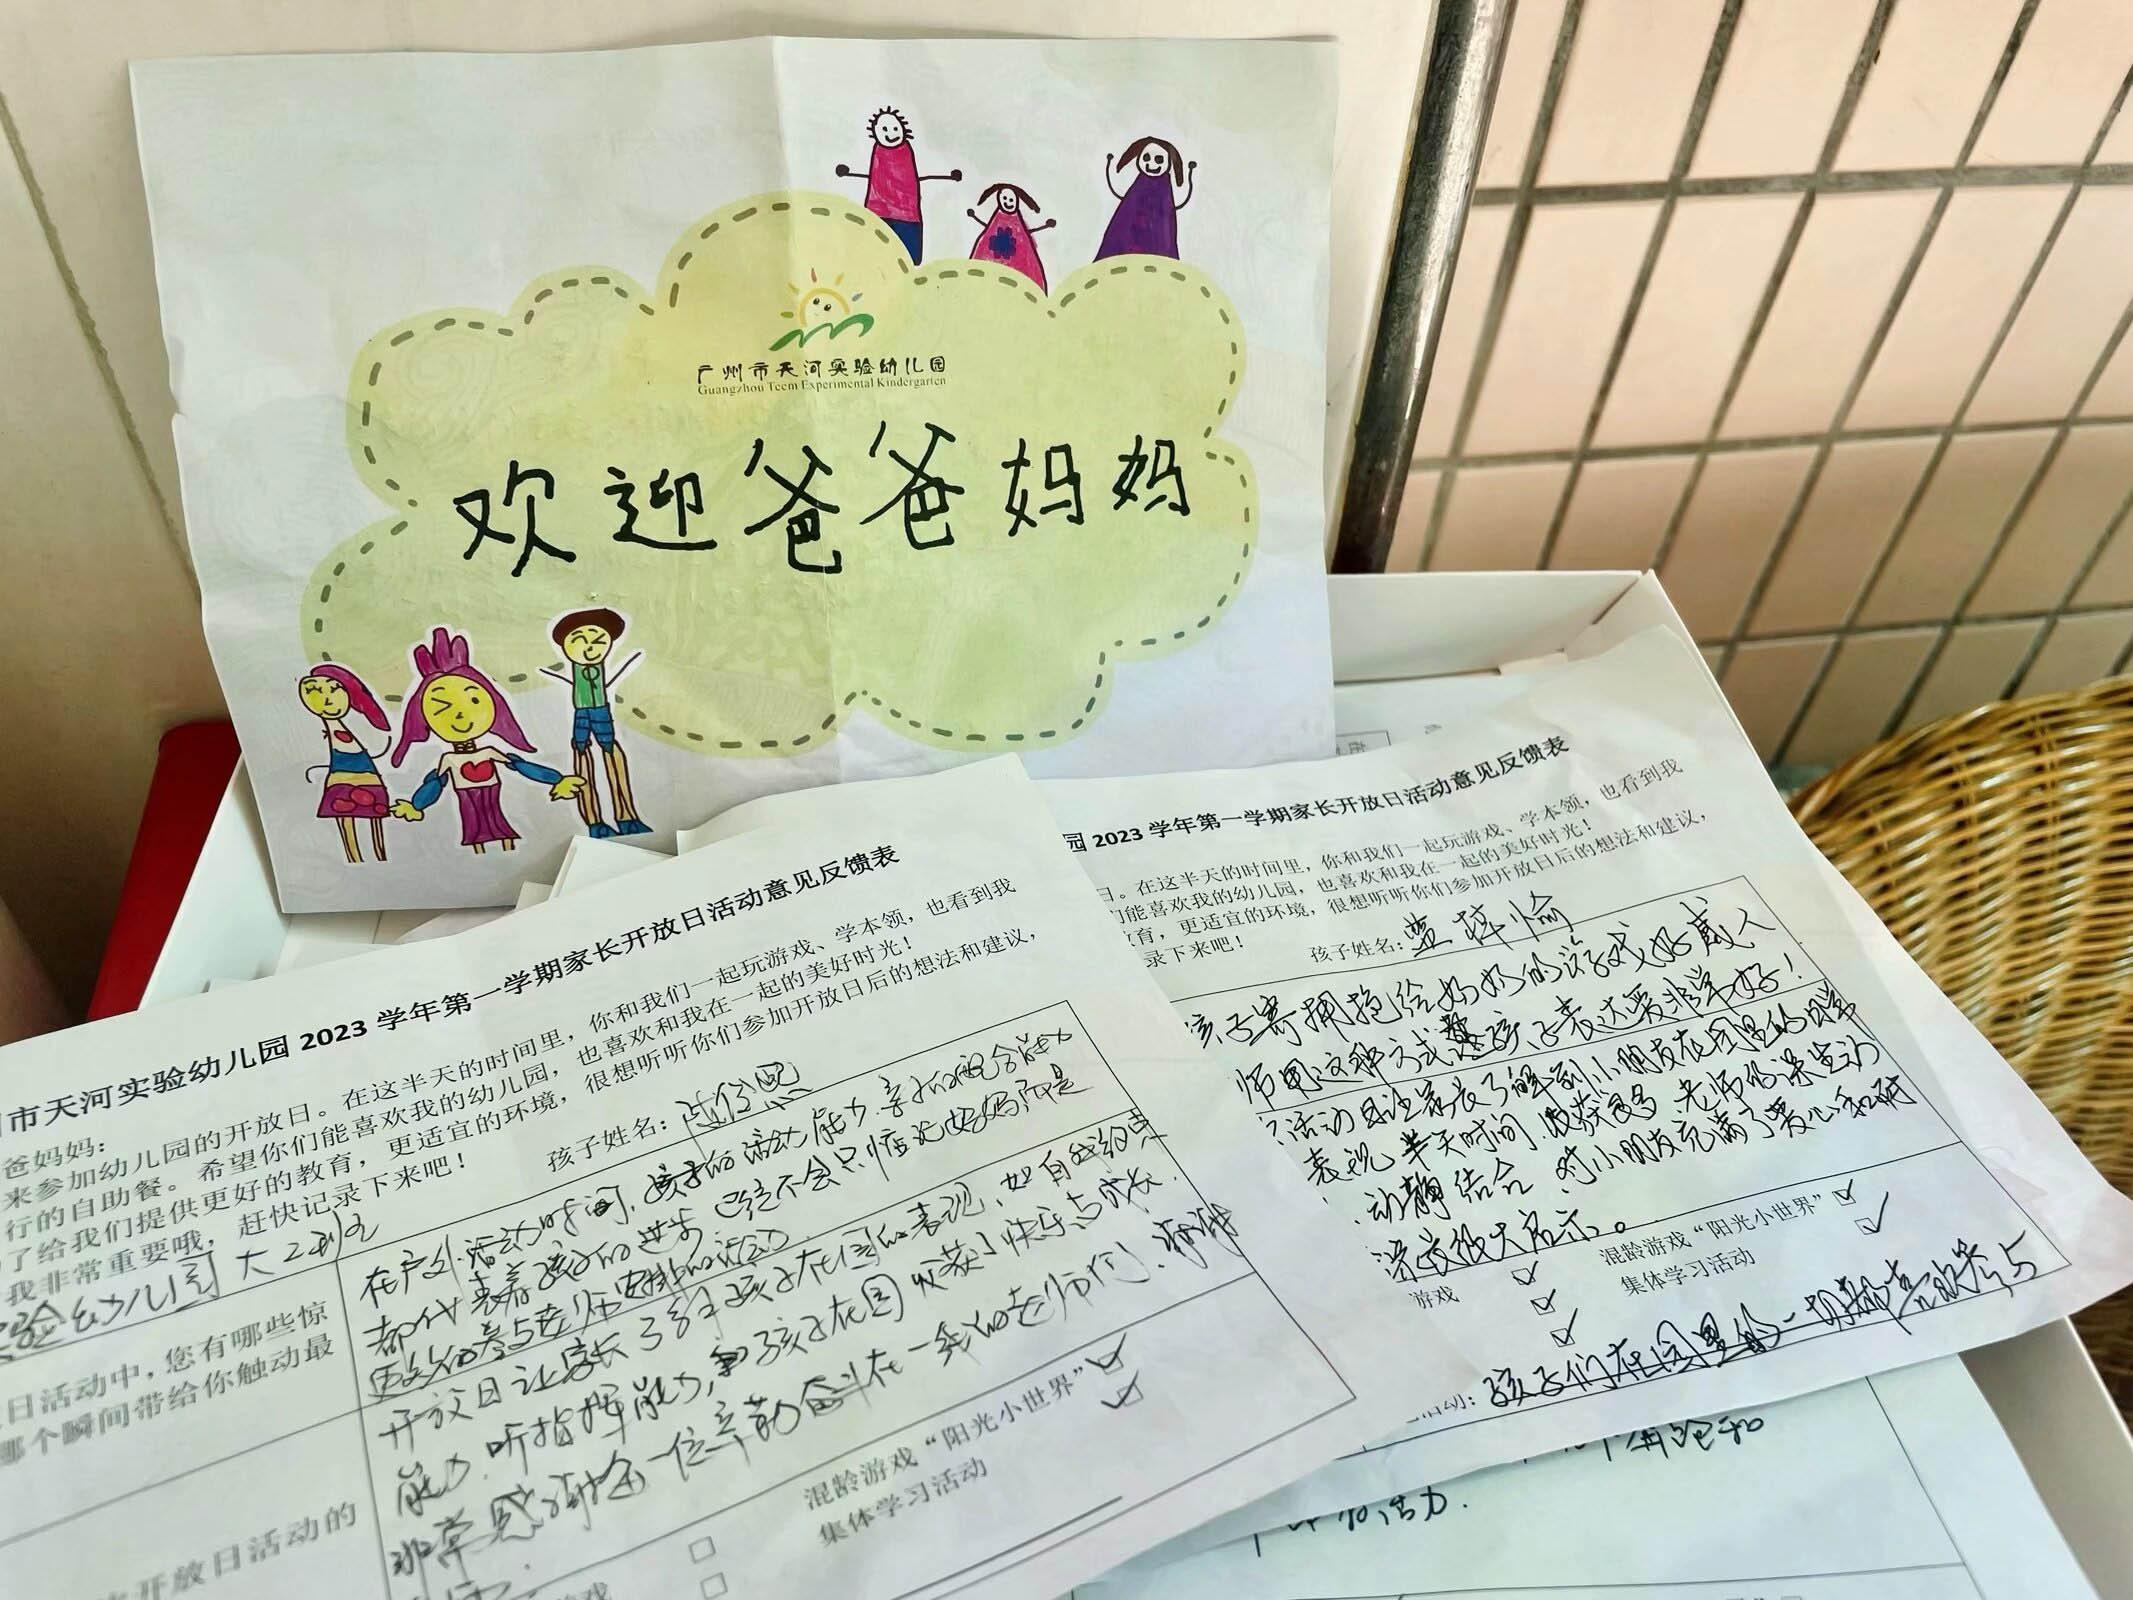 广州市天河实验幼儿园
Guangzhou Teem Experimental Kindergarten
欢迎爸爸妈妈
市天河实验幼儿园 2023 学年第一学期家长开放日活动意见反馈表
爸妈妈：
来参加幼儿园的开放日。在这半天的时间里，你和我们一起玩游戏、学本领，也看到我
行的自助餐。希望你们能喜欢我的幼儿园，也喜欢和我在一起的美好时光！
了给我们提供更好的教育，更适宜的环境，很想听听你们参加开放日后的想法和建议，
我非常重要哦，赶快记录下来吧！
孩子姓名：
验幼儿园 大二班
日活动中，您有哪些惊
那个瞬间带给你触动最
在户外活动时间，孩子的活动能力、亲子的配合能力
都代表着孩子的进步 已经不会只惦记妈妈而是
更多的参与老师安排的活动
开放日活动的
开放日让家长了解孩子在园的表现，如自我约束
能力、听指挥能力，孩子在园收获了快乐与成长
非常感谢每一位辛勤奋斗在一线的老师们，谢谢
混龄游戏“阳光小世界”
集体学习活动
游戏
园 2023 学年第一学期家长开放日活动意见反馈表
日。在这半天的时间里，你和我们一起玩游戏、学本领，也看到我
们能喜欢我的幼儿园，也喜欢和我在一起的美好时光！
教育，更适宜的环境，很想听听你们参加开放日后的想法和建议，
录下来吧！
孩子姓名：蓝梓愉
孩子寄拥抱给奶奶的游戏好感人
师用这种方式教孩子表达爱非常好！
活动让家长了解到小朋友在园里的日常
表现 半天时间 收获良多 老师的课生动
动静结合 对小朋友充满了爱心和耐
游戏
混龄游戏“阳光小世界”
集体学习活动
活动：孩子们在园里的一切都喜欢参与
和
活力.